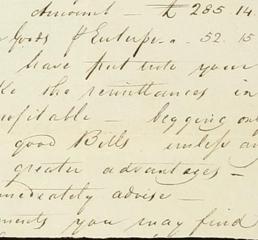 Amount — £ 285 14.
Goods p Enterpe 52. 15
have put into your
the remittances in
profitable — begging only
good Bills unless an
greater advantages —
immediately advise —
ments you may find